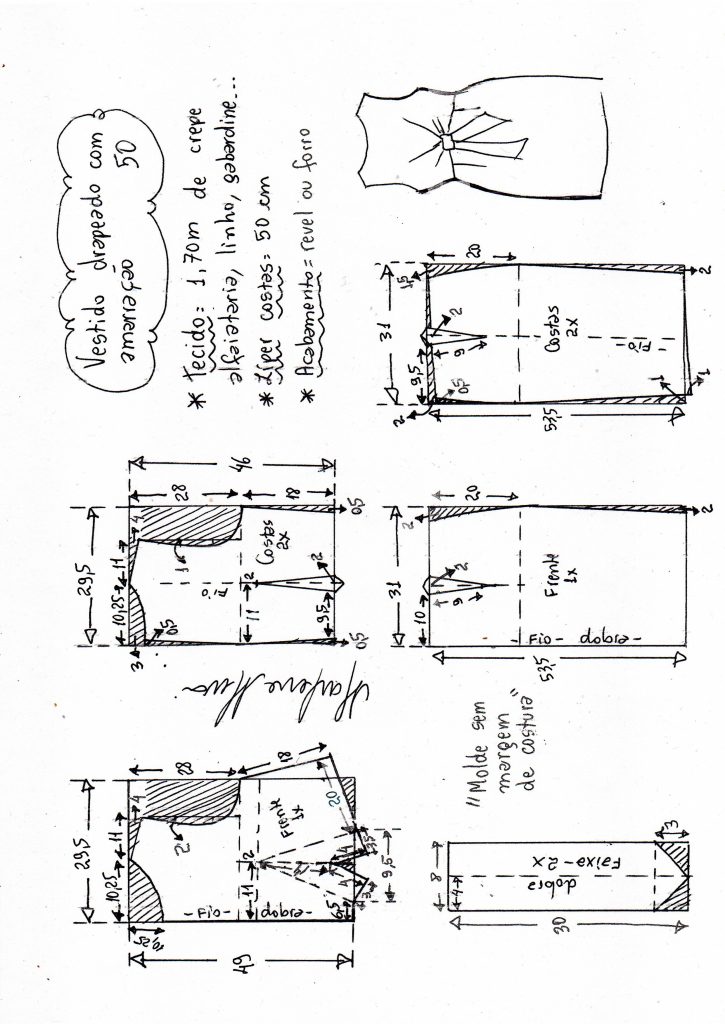 Vestido drapeado com
amarração 50
* Tecido= 1,70m de crepe
alfaiataria, linho, gabardine...
* Zíper costas= 50 cm
* Acabamento= revel ou forro
29,5
10,25
11
4
10,25
28
49
2
18
Frente
1x
20
2
11
- Fio - dobra -
4
4
3,5
9,5
3
6,5
29,5
10,25
11
4
3
28
46
1
0,5
Fio
Costas
2x
18
11
2
9,5
2
0,5
0,5
"Molde sem
margem
de costura"
8
4
dobra
Faixa - 2x
30
3
31
10
2
9
2
20
Frente
1x
- Fio - dobra -
53,5
2
31
9,5
1,5
2
0,5
9
2
20
Costas
2x
- Fio -
53,5
1
1
2